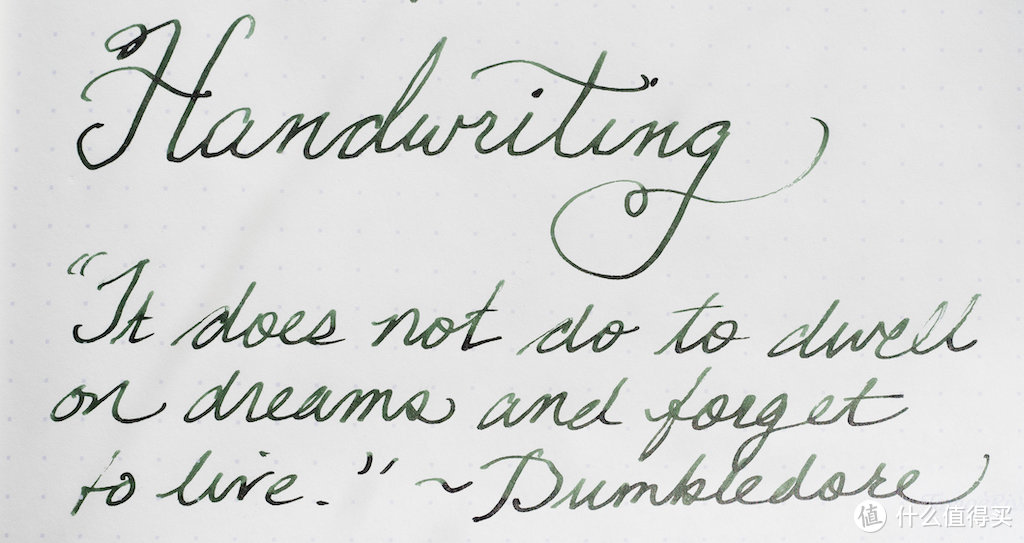 Handwriting
“It does not do to dwell
on dreams and forget
to live.” ~Dumbledore
值 什么值得买